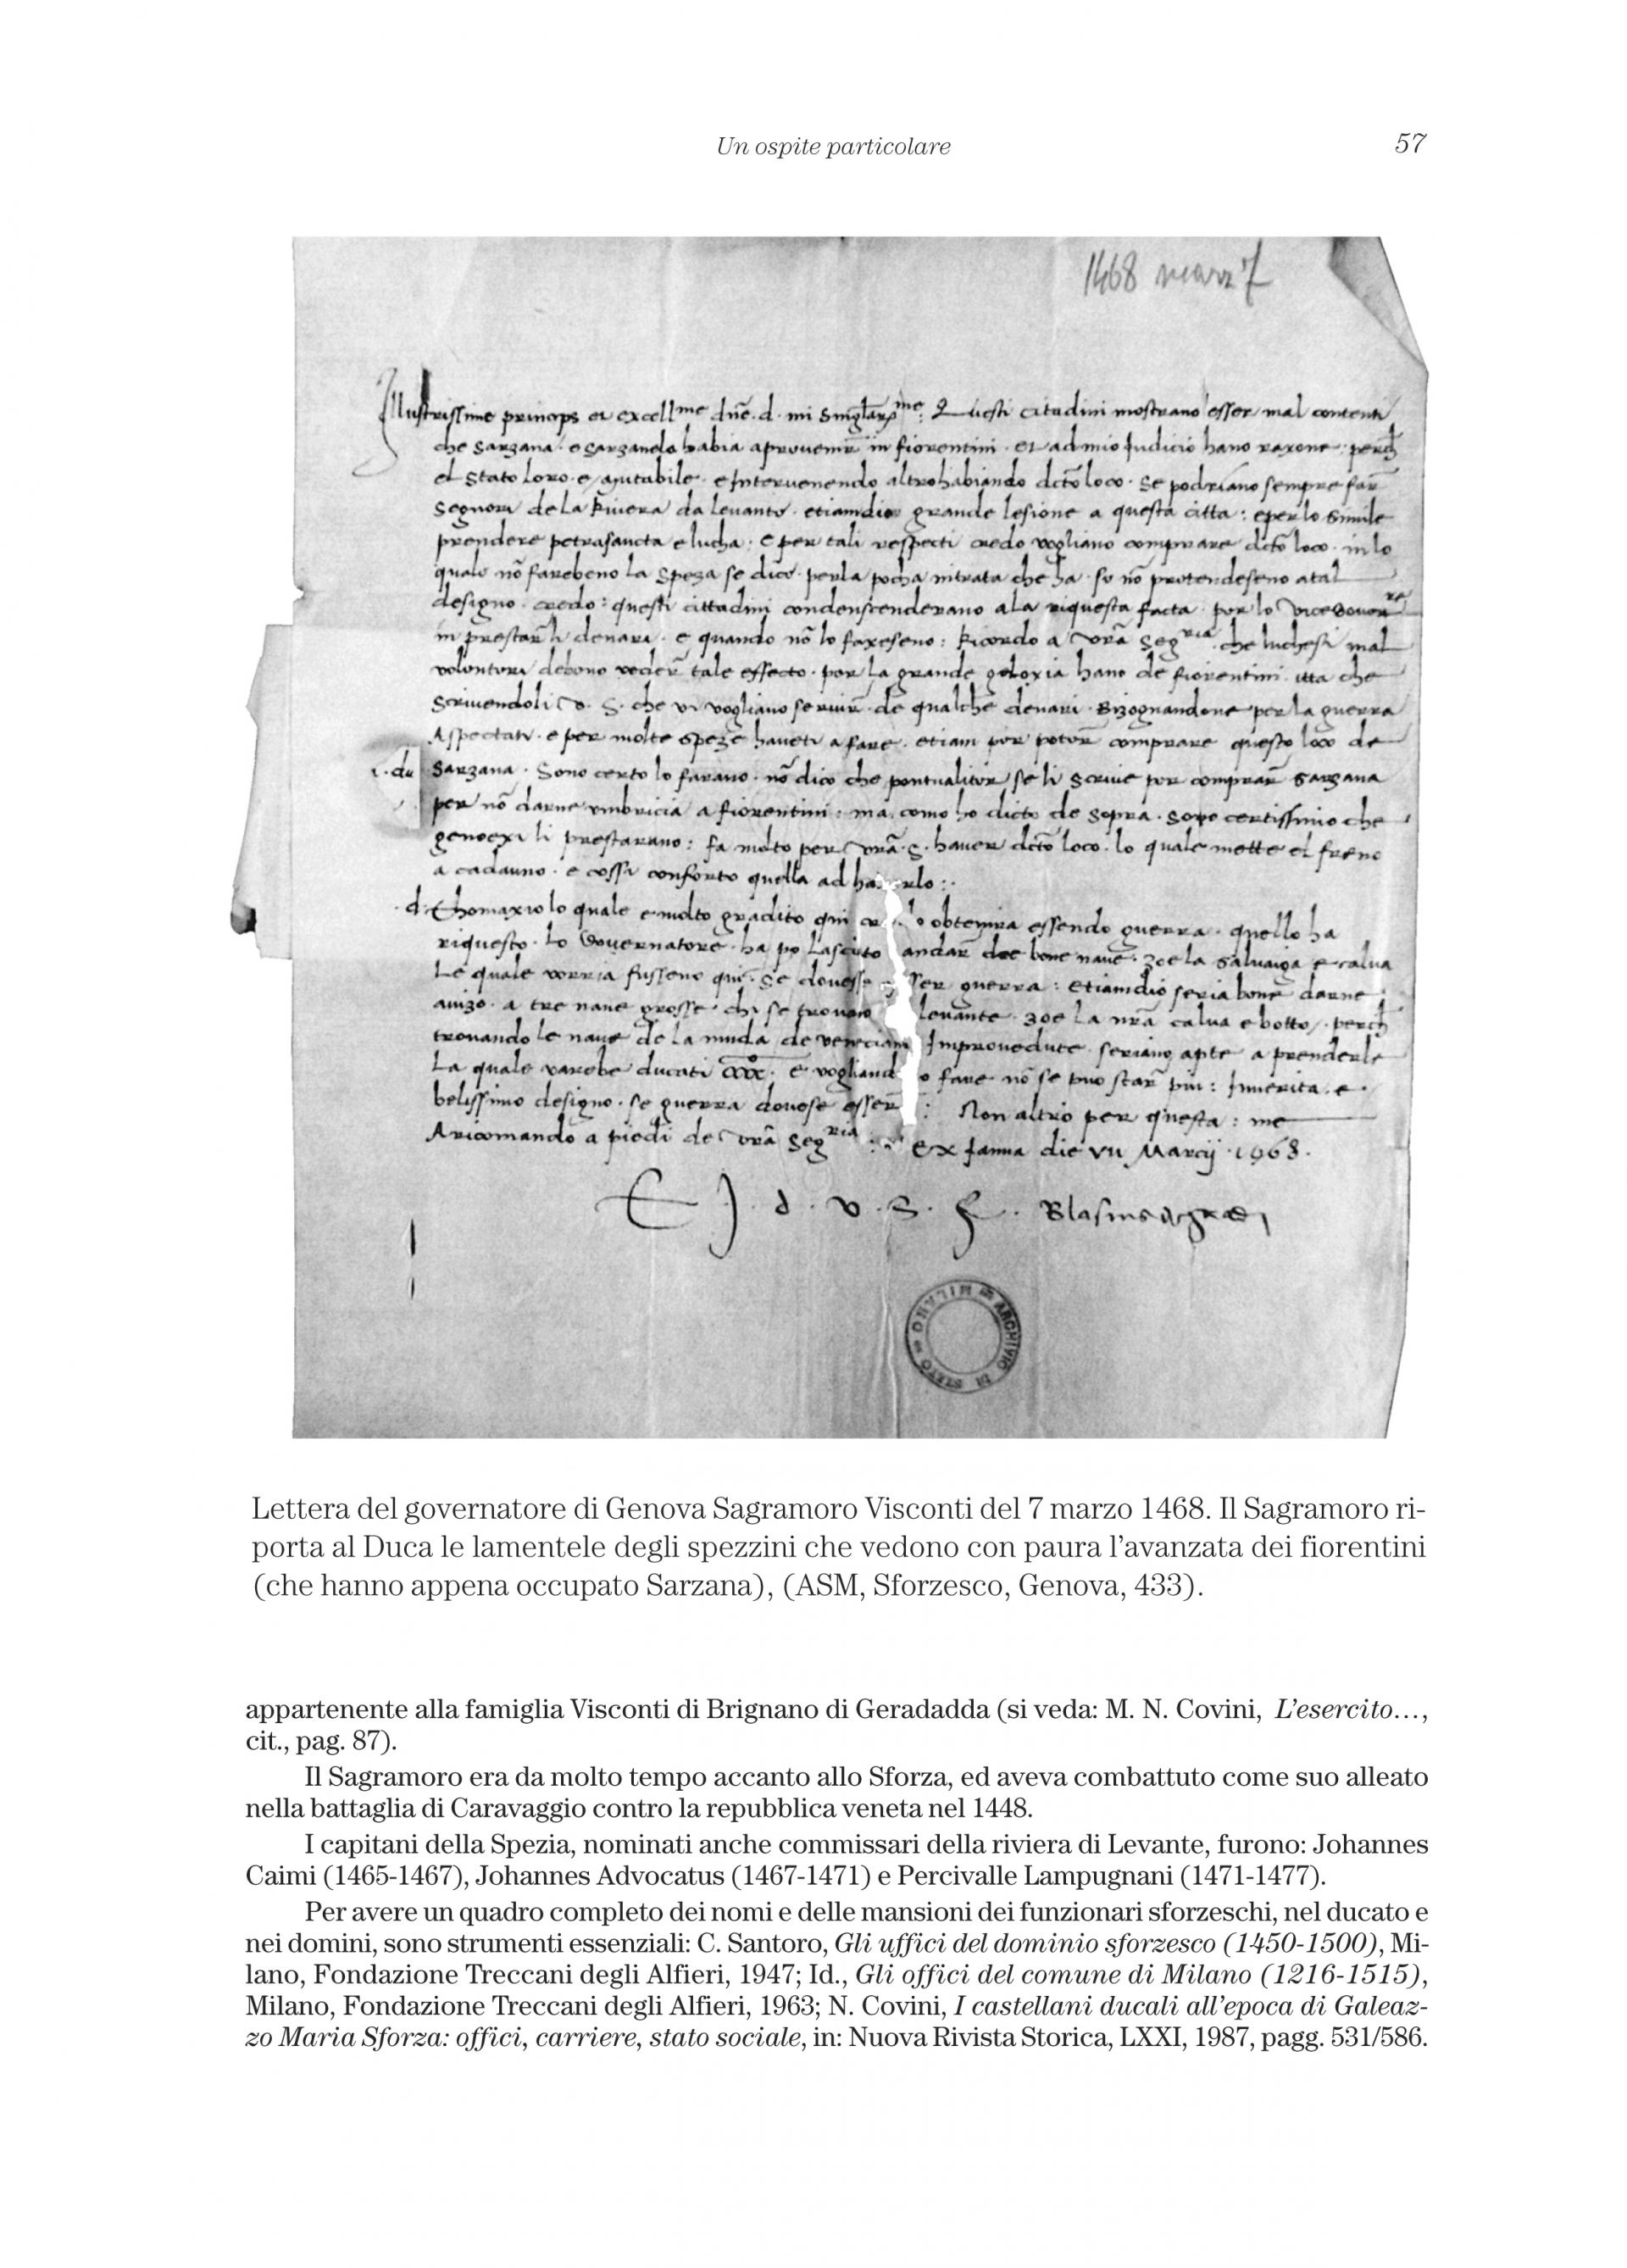 Un ospite particolare
57
1468 marz 7
Illustrissime princeps et excellme dnē. d. mi Singlarme: Questi citadini mostrano esser mal contenti
che Sarzana e Sarzanelo habia a provenir in fiorentini et ad mio Judicio hano raxone: perch
el Stato loro e mutabile e Intervenendo altro habiando dcto loco se podriano sempre far
Segnori de la Riviera da levante etiamdio grande lesione a questa citta: e per lo Simile
prendere petrasancta e lucha: e per tali respecti credo vogliano comprare dcto loco in lo
quale nō farebeno la Speza se dico per la pocha intrata che ha se nō pretendeseno a tal
designo credo: questi cittadini condenscenderano a la riquesta facta per lo vice Governre
in prestarli denari e quando nō lo faxeseno: Ricordo a vrā Segria che luchesi mal
volontera debono veder tale effecto per la grande geloxia hano de fiorentini itta che
Scrivendoli v. S. che vi vogliano servir de qualche denari Bizognandone per la guerra
Aspectati e per molte speze haveti a fare etiam per poter comprare questo loco de
Sarzana Sono certo lo farano nō dico che pontualiter se li Scrive per comprar Sarzana
per nō darne umbricia a fiorentini: ma como ho dicto de Sopra Sono certissimo che
genoexi li prestarano: fa molto per vrā S. haver dcto loco lo quale mette el freno
a cadauno e cossi conforto quella ad ha rlo:
d. Thomaxio lo quale e molto gradito qui o obtenira essendo guerra quello ha
riquesto Lo Governatore ha po Lasciato andar doe bone nave zoe la Salvaiga e calva
Le quale vorria fusseno qui Se dovesse sser guerra: etiamdio seria bone darne
avizo a tre nave grosse chi se trovano levante zoe la nrā calva e botto perch
trovando le nave de la muda de veneciani Improvedute seriano apte a prenderle
La quale varebe ducati e vogliand o fare nō se puo star piu: Inverita e
belissimo designo se guerra dovese esser: Non altro per questa: me
Aricomando a piedi de vrā Segria: Ex Janua die vii Marcij 1468.
E. d. v. S. S.
ARCHIVIO DI STATO MILANO
Lettera del governatore di Genova Sagramoro Visconti del 7 marzo 1468. Il Sagramoro ri-
porta al Duca le lamentele degli spezzini che vedono con paura l'avanzata dei fiorentini
(che hanno appena occupato Sarzana), (ASM, Sforzesco, Genova, 433).
appartenente alla famiglia Visconti di Brignano di Geradadda (si veda: M. N. Covini, L'esercito…,
cit., pag. 87).
Il Sagramoro era da molto tempo accanto allo Sforza, ed aveva combattuto come suo alleato
nella battaglia di Caravaggio contro la repubblica veneta nel 1448.
I capitani della Spezia, nominati anche commissari della riviera di Levante, furono: Johannes
Caimi (1465-1467), Johannes Advocatus (1467-1471) e Percivalle Lampugnani (1471-1477).
Per avere un quadro completo dei nomi e delle mansioni dei funzionari sforzeschi, nel ducato e
nei domini, sono strumenti essenziali: C. Santoro, Gli uffici del dominio sforzesco (1450-1500), Mi-
lano, Fondazione Treccani degli Alfieri, 1947; Id., Gli offici del comune di Milano (1216-1515),
Milano, Fondazione Treccani degli Alfieri, 1963; N. Covini, I castellani ducali all'epoca di Galeaz-
zo Maria Sforza: offici, carriere, stato sociale, in: Nuova Rivista Storica, LXXI, 1987, pagg. 531/586.